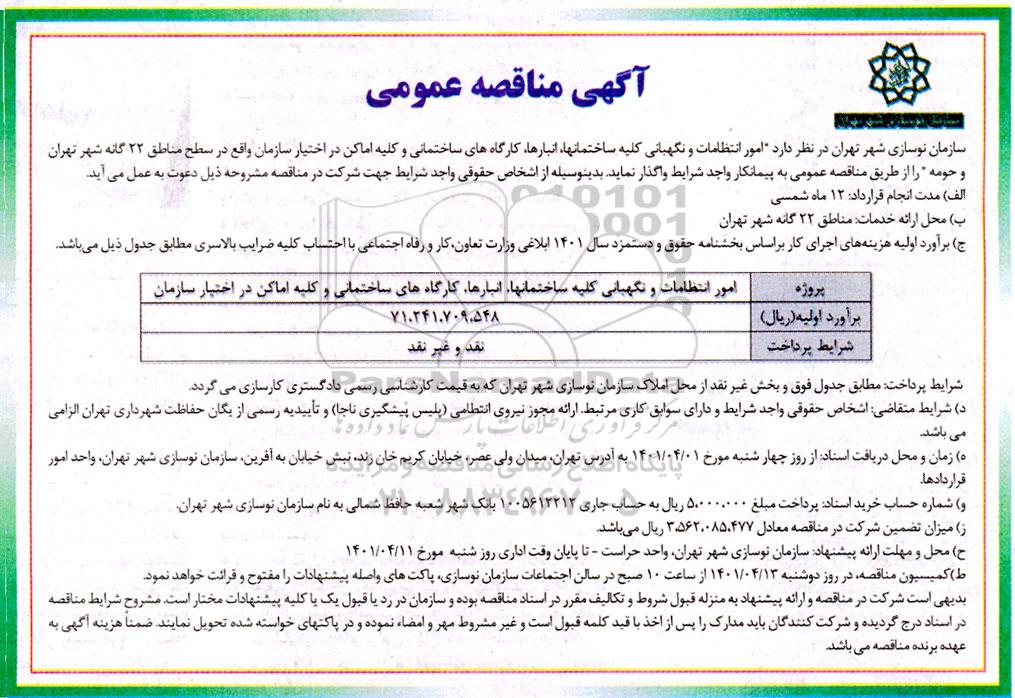 آگهی مناقصه عمومی
سازمان نوسازی شهر تهران
سازمان نوسازی شهر تهران در نظر دارد "امور انتظامات و نگهبانی کلیه ساختمانها، انبارها، کارگاه های ساختمانی و کلیه اماکن در اختیار سازمان واقع در سطح مناطق ۲۲ گانه شهر تهران
و حومه " را از طریق مناقصه عمومی به پیمانکار واجد شرایط واگذار نماید. بدینوسیله از اشخاص حقوقی واجد شرایط جهت شرکت در مناقصه مشروحه ذیل دعوت به عمل می آید.
الف) مدت انجام قرارداد: ۱۲ ماه شمسی
ب) محل ارائه خدمات: مناطق ۲۲ گانه شهر تهران
ج) برآورد اولیه هزینه‌های اجرای کار براساس بخشنامه حقوق و دستمزد سال ۱۴۰۱ ابلاغی وزارت تعاون،کار و رفاه اجتماعی با احتساب کلیه ضرایب بالاسری مطابق جدول ذیل می‌باشد.
پروژه امور انتظامات و نگهبانی کلیه ساختمانها، انبارها، کارگاه های ساختمانی و کلیه اماکن در اختیار سازمان
برآورد اولیه(ریال) ۷۱.۲۴۱.۷۰۹.۵۴۸
شرایط پرداخت نقد و غیر نقد
شرایط پرداخت: مطابق جدول فوق و بخش غیر نقد از محل املاک سازمان نوسازی شهر تهران که به قیمت کارشناسی رسمی دادگستری کارسازی می گردد.
د) شرایط متقاضی: اشخاص حقوقی واجد شرایط و دارای سوابق کاری مرتبط. ارائه مجوز نیروی انتظامی (پلیس پیشگیری ناجا) و تأییدیه رسمی از یگان حفاظت شهرداری تهران الزامی
می باشد.
ه) زمان و محل دریافت اسناد: از روز چهار شنبه مورخ ۱۴۰۱/۰۴/۰۱ به آدرس تهران، میدان ولی عصر، خیابان کریم خان زند، نبش خیابان به آفرین، سازمان نوسازی شهر تهران، واحد امور
قراردادها.
و) شماره حساب خرید اسناد: پرداخت مبلغ ۵.۰۰۰.۰۰۰ ریال به حساب جاری ۱۰۰۵۶۱۳۲۱۲ بانک شهر شعبه حافظ شمالی به نام سازمان نوسازی شهر تهران.
ز) میزان تضمین شرکت در مناقصه معادل ۳.۵۶۲.۰۸۵.۴۷۷ ریال می‌باشد.
ح) محل و مهلت ارائه پیشنهاد: سازمان نوسازی شهر تهران، واحد حراست - تا پایان وقت اداری روز شنبه مورخ ۱۴۰۱/۰۴/۱۱
ط)کمیسیون مناقصه، در روز دوشنبه ۱۴۰۱/۰۴/۱۳ از ساعت ۱۰ صبح در سالن اجتماعات سازمان نوسازی، پاکت های واصله پیشنهادات را مفتوح و قرائت خواهد نمود.
بدیهی است شرکت در مناقصه و ارائه پیشنهاد به منزله قبول شروط و تکالیف مقرر در اسناد مناقصه بوده و سازمان در رد یا قبول یک یا کلیه پیشنهادات مختار است. مشروح شرایط مناقصه
در اسناد درج گردیده و شرکت کنندگان باید مدارک را پس از اخذ با قید کلمه قبول است و غیر مشروط مهر و امضاء نموده و در پاکتهای خواسته شده تحویل نمایند. ضمناً هزینه آگهی به
عهده برنده مناقصه می باشد.
ParsNamadData
مرکز فرآوری اطلاعات پارس نماد داده ها
پایگاه اطلاع رسانی مناقصه و مزایده
۰۲۱-۸۸۳۴۹۶۷۰-۵